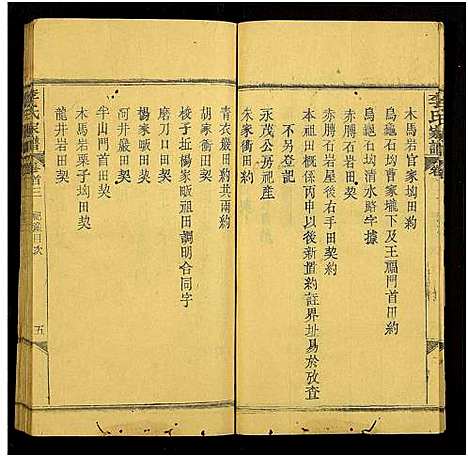 李氏家譜
木馬岩官家坳田約
烏龜石坳曹家壠下及王福門首田約
烏龜石坳清水路字據
赤膊石岩屋場右手田契約
赤膊石岩田契
本祖田條例丙申以後新置約註界址易於攷查
不另登記
永茂公房祀產
朱家衝田契約
青衣嚴田約共兩約
胡家衝田契
梭子坵楊家畈祖田調明合同字
磨刀口田契
楊家畈田契
河井嚴田契
半山門首田契
木馬岩栗子坳田契
龍井岩田契
李氏家譜
卷首三
總錄目次
五